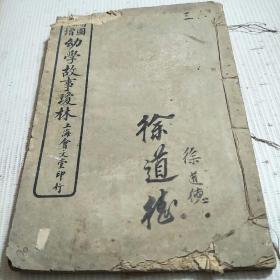 繪圖
幼學故事瓊林
上海會文堂印行
三
徐道德
徐道德